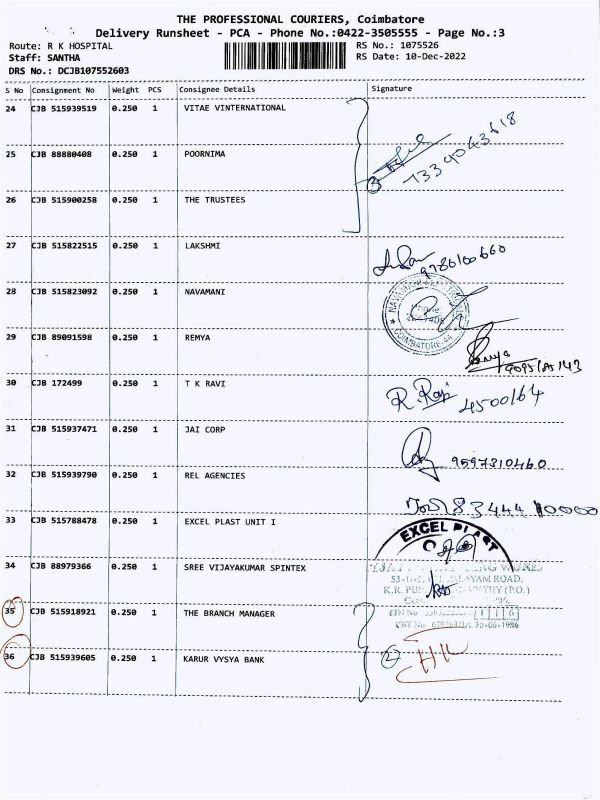 THE PROFESSIONAL COURIERS, Coimbatore
Delivery Runsheet - PCA - Phone No.:0422-3505555 - Page No.:3
Route: R K HOSPITAL RS No.: 1075526
Staff: SANTHA RS Date: 10-Dec-2022
DRS No.: DCJB107552603
S No Consignment No Weight PCS Consignee Details Signature
24 CJB 515939519 0.250 1 VITAE VINTERNATIONAL
25 CJB 88880408 0.250 1 POORNIMA
3 7339043618
26 CJB 515900258 0.250 1 THE TRUSTEES
27 CJB 515822515 0.250 1 LAKSHMI
9786100660
28 CJB 515823092 0.250 1 NAVAMANI
COIMBATORE-44
29 CJB 89091598 0.250 1 REMYA
30 CJB 172499 0.250 1 T K RAVI
R. Raji 4500164
31 CJB 515937471 0.250 1 JAI CORP
9597310460
32 CJB 515939790 0.250 1 REL AGENCIES
83444 10000
33 CJB 515788478 0.250 1 EXCEL PLAST UNIT I
EXCEL PLAST
34 CJB 88979366 0.250 1 SREE VIJAYAKUMAR SPINTEX
ROAD,
K.R. (P.O.)
35 CJB 515918921 0.250 1 THE BRANCH MANAGER
36 CJB 515939605 0.250 1 KARUR VYSYA BANK
2